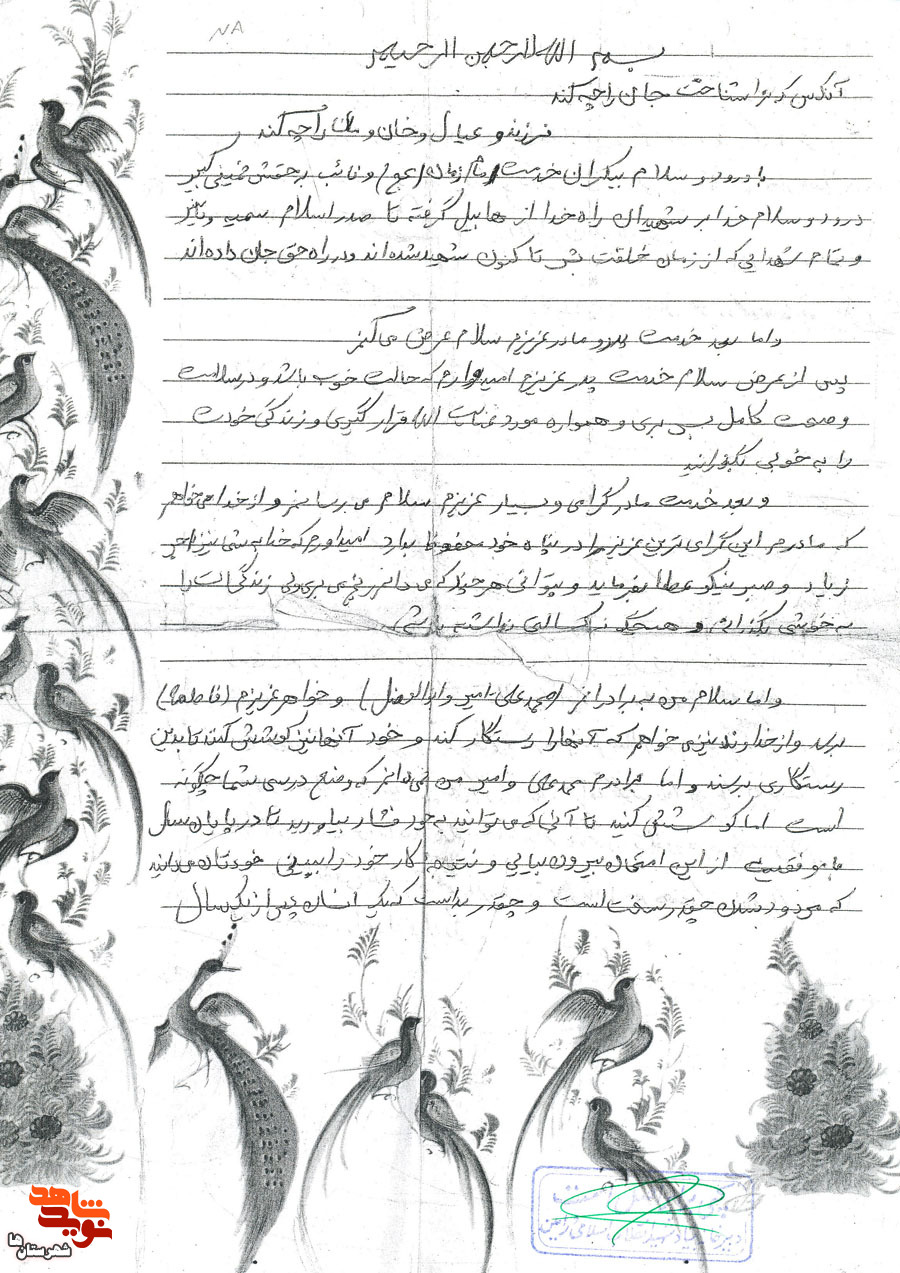 بسم الله الرحمن الرحیم
آنکس که ترا شناخت جان را چه کند
فرزند و عیال و خان و مان را چه کند
با درود و سلام بیکران خدمت امام زمان (عج) و نائب برحقش خمینی کبیر
درود و سلام خدا بر شهیدان راه خدا از هابیل گرفته تا صدر اسلام سمیه و یاسر
و تمام شهدایی که از زمان خلقت بشر تا کنون شهید شده اند و در راه حق جان داده اند
و اما بعد خدمت پدر و مادر عزیزم سلام عرض می کنم
پس از عرض سلام خدمت پدر عزیزم امیدوارم که حالت خوب باشد و در سلامت
و صحت کامل بسر بری و همواره مورد عنایت الله قرار گیری و زندگی خودت
را به خوبی بگذرانید
و بعد خدمت مادر گرامی و بسیار عزیزم سلام می رسانم و از خدا می خواهم
که مادرم این گرامی ترین عزیز را در پناه خود محفوظ بدارد امیدوارم که خدا به شما نیز اجر
زیاد و صبر نیکو عطا بفرماید و بتوانی هر چند که می دانم رنج می بری ولی زندگی ات را
به خوشی بگذرانی و هیچگونه کسالتی نداشته باشی
و اما سلام من به برادرانم (محمد علی - امیر و ابوالفضل) و خواهر عزیزم (فاطمه)
برسد و از خداوند نیز می خواهم که آنها را رستگار کند و خود آنها نیز کوشش کنند تا بدین
رستگاری برسند و اما برادرم محمد علی و امیر من نمی دانم که وضع درسی شما چگونه
است اما کوشش کنید تا آنجا که می توانید به خود فشار بیاورید تا در پایان سال
با موفقیت از این امتحان بیرون بیایی و نتیجه کار خود را ببینی خودتان می دانید
که مردود شدن چقدر سخت است و چقدر بد است که یک انسان پس از یک سال
نوید شاهد
شهرستان ها